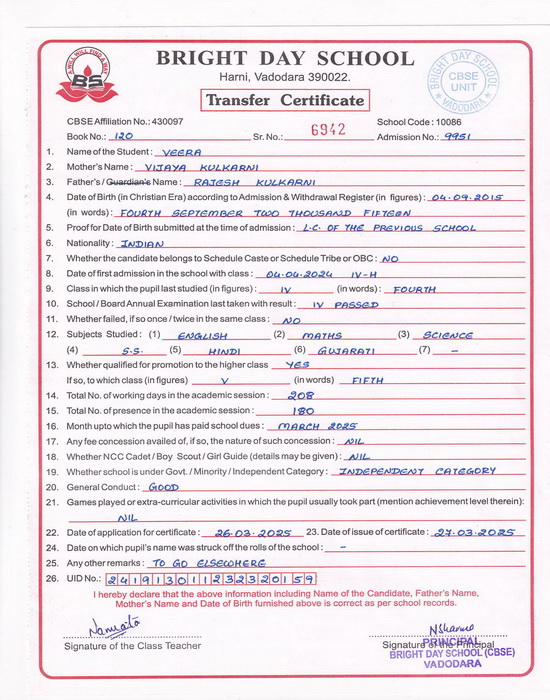 A WILL WILL FIND A WAY
BS
BRIGHT DAY SCHOOL
Harni, Vadodara 390022.
Transfer Certificate
BRIGHT DAY SCHOOL
CBSE
UNIT
VADODARA
CBSE Affiliation No.: 430097 School Code : 10086
Book No.: 120 Sr. No.: 6942 Admission No.: 9951
1. Name of the Student : VEERA
2. Mother's Name : VIJAYA KULKARNI
3. Father's / Guardian's Name : RAJESH KULKARNI
4. Date of Birth (in Christian Era) according to Admission & Withdrawal Register (in figures) : 04.09.2015
(in words) : FOURTH SEPTEMBER TWO THOUSAND FIFTEEN
5. Proof for Date of Birth submitted at the time of admission : L.C. OF THE PREVIOUS SCHOOL
6. Nationality : INDIAN
7. Whether the candidate belongs to Schedule Caste or Schedule Tribe or OBC : NO
8. Date of first admission in the school with class : 04.04.2024 IV-H
9. Class in which the pupil last studied (in figures) : IV (in words) : FOURTH
10. School / Board Annual Examination last taken with result : IV PASSED
11. Whether failed, if so once / twice in the same class : NO
12. Subjects Studied : (1) ENGLISH (2) MATHS (3) SCIENCE
(4) S.S. (5) HINDI (6) GUJARATI (7) -
13. Whether qualified for promotion to the higher class YES
If so, to which class (in figures) V (in words) FIFTH
14. Total No. of working days in the academic session : 208
15. Total No. of presence in the academic session : 180
16. Month upto which the pupil has paid school dues : MARCH 2025
17. Any fee concession availed of, if so, the nature of such concession : NIL
18. Whether NCC Cadet / Boy Scout / Girl Guide (details may be given) : NIL
19. Whether school is under Govt. / Minority / Independent Category : INDEPENDENT CATEGORY
20. General Conduct : GOOD
21. Games played or extra-curricular activities in which the pupil usually took part (mention achievement level therein):
NIL
22. Date of application for certificate : 26.03.2025 23. Date of issue of certificate : 27.03.2025
24. Date on which pupil's name was struck off the rolls of the school : -
25. Any other remarks : TO GO ELSEWHERE
26. UID No.: 241913011232320159
I hereby declare that the above information including Name of the Candidate, Father's Name,
Mother's Name and Date of Birth furnished above is correct as per school records.
Namrata NSharma
Signature of the Class Teacher Signature of the Principal
PRINCIPAL
BRIGHT DAY SCHOOL (CBSE)
VADODARA